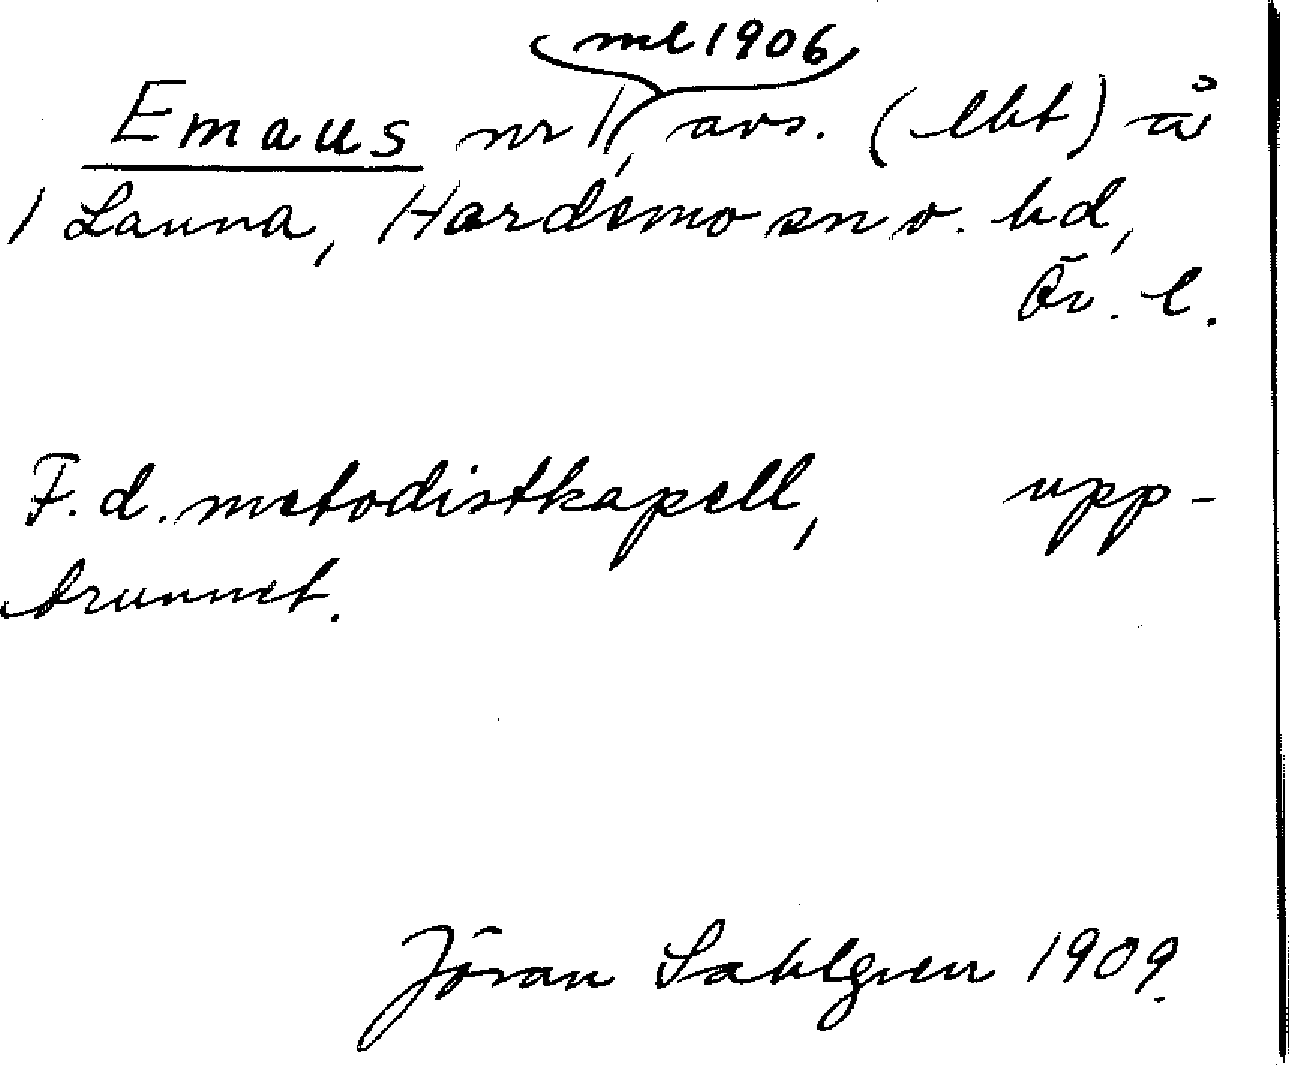 ml 1906
Emaus nr 1, avs. (lht) å
1 Launa, Hardemo sn o. hd,
Ör. l.
F. d. metodistkapell, upp-
brunnet.
Jöran Sahlgren 1909.